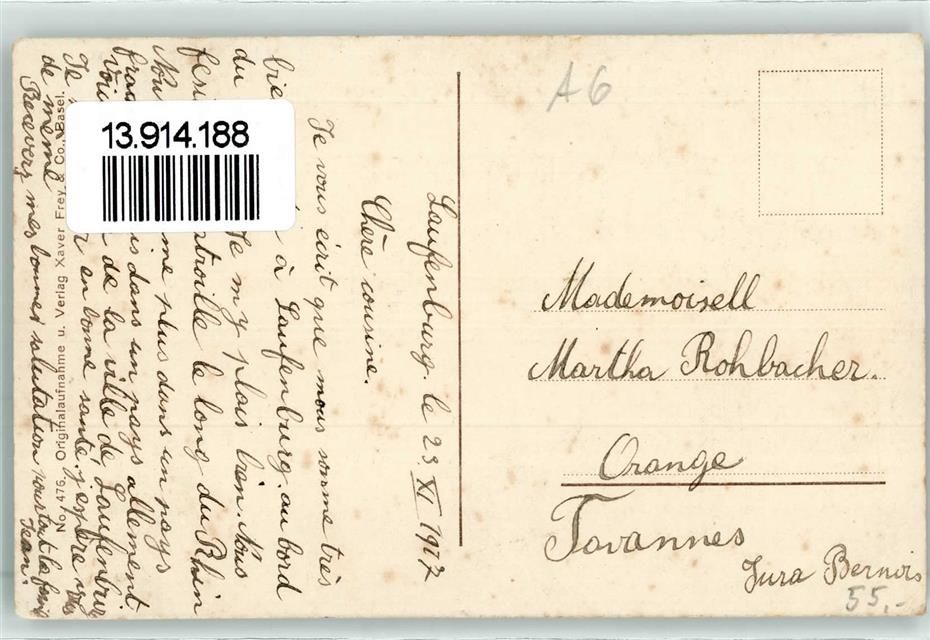 Laufenburg. le 23 XI 1917
Chère cousine.
Je vous écrit que nous somme très
bie à Laufenburg. au bord
du Je m'y plais bien. Nous
atroille le long du Rhin
Nou me plus dans un pays
is dans un pays allement
de la ville de Laufenbur
Je en bonne santé. j'espère
de même
Recevez mes bonnes salutation
Jean.
No. 476. Originalaufnahme u. Verlag Xaver Frey & Co., Basel.
13.914.188
A6
Mademoisell
Martha Rohbacher.
Orange
Tavannes
Jura Bernois
55,-